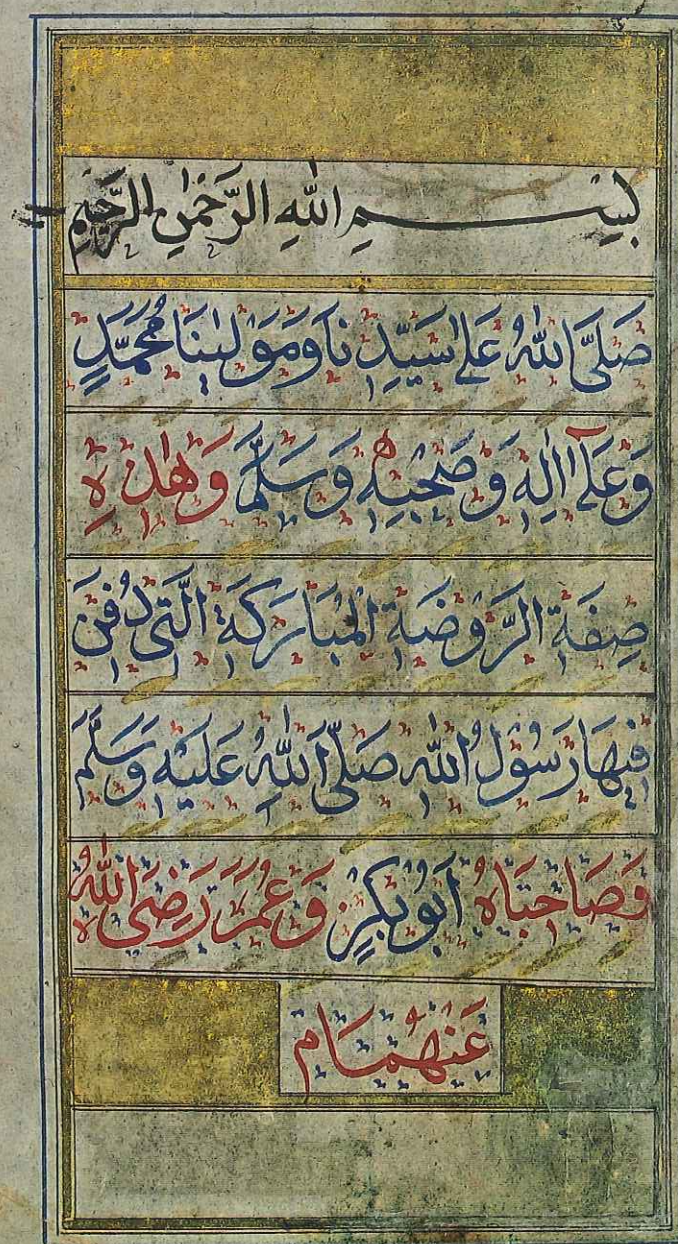 بِسْمِ اللهِ الرَّحْمٰنِ الرَّحِيمِ
صَلَّى اللهُ عَلٰى سَيِّدِنَا وَمَوْلٰينَا مُحَمَّدٍ
وَعَلٰٓى اٰلِهٖ وَصَحْبِهٖ وَسَلَّمَ وَهٰذِهٖ
صِفَةِ الرَّوْضَةِ الْمُبَارَكَةِ الَّتِى دُفِنَ
فِيْهَا رَسُوْلُ اللهِ صَلَّى اللهُ عَلَيْهِ وَسَلَّمَ
وَصَاحِبَاهُ اَبُوْبَكْرٍ وَعُمَرَ رَضِىَ اللهُ
عَنْهُمَا م